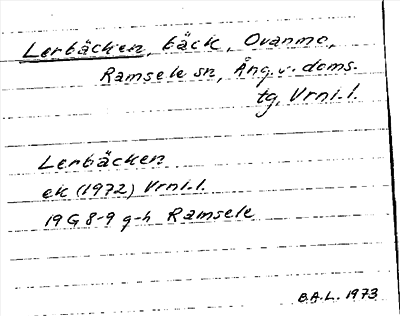 Lerbäcken, bäck, Ovanmo,
Ramsele sn, Ång. v. doms.
tg, Vrnl. l.
Lerbäcken
ek (1972) Vrnl. l.
19G 8-9 g-h Ramsele
B.A.L. 1973